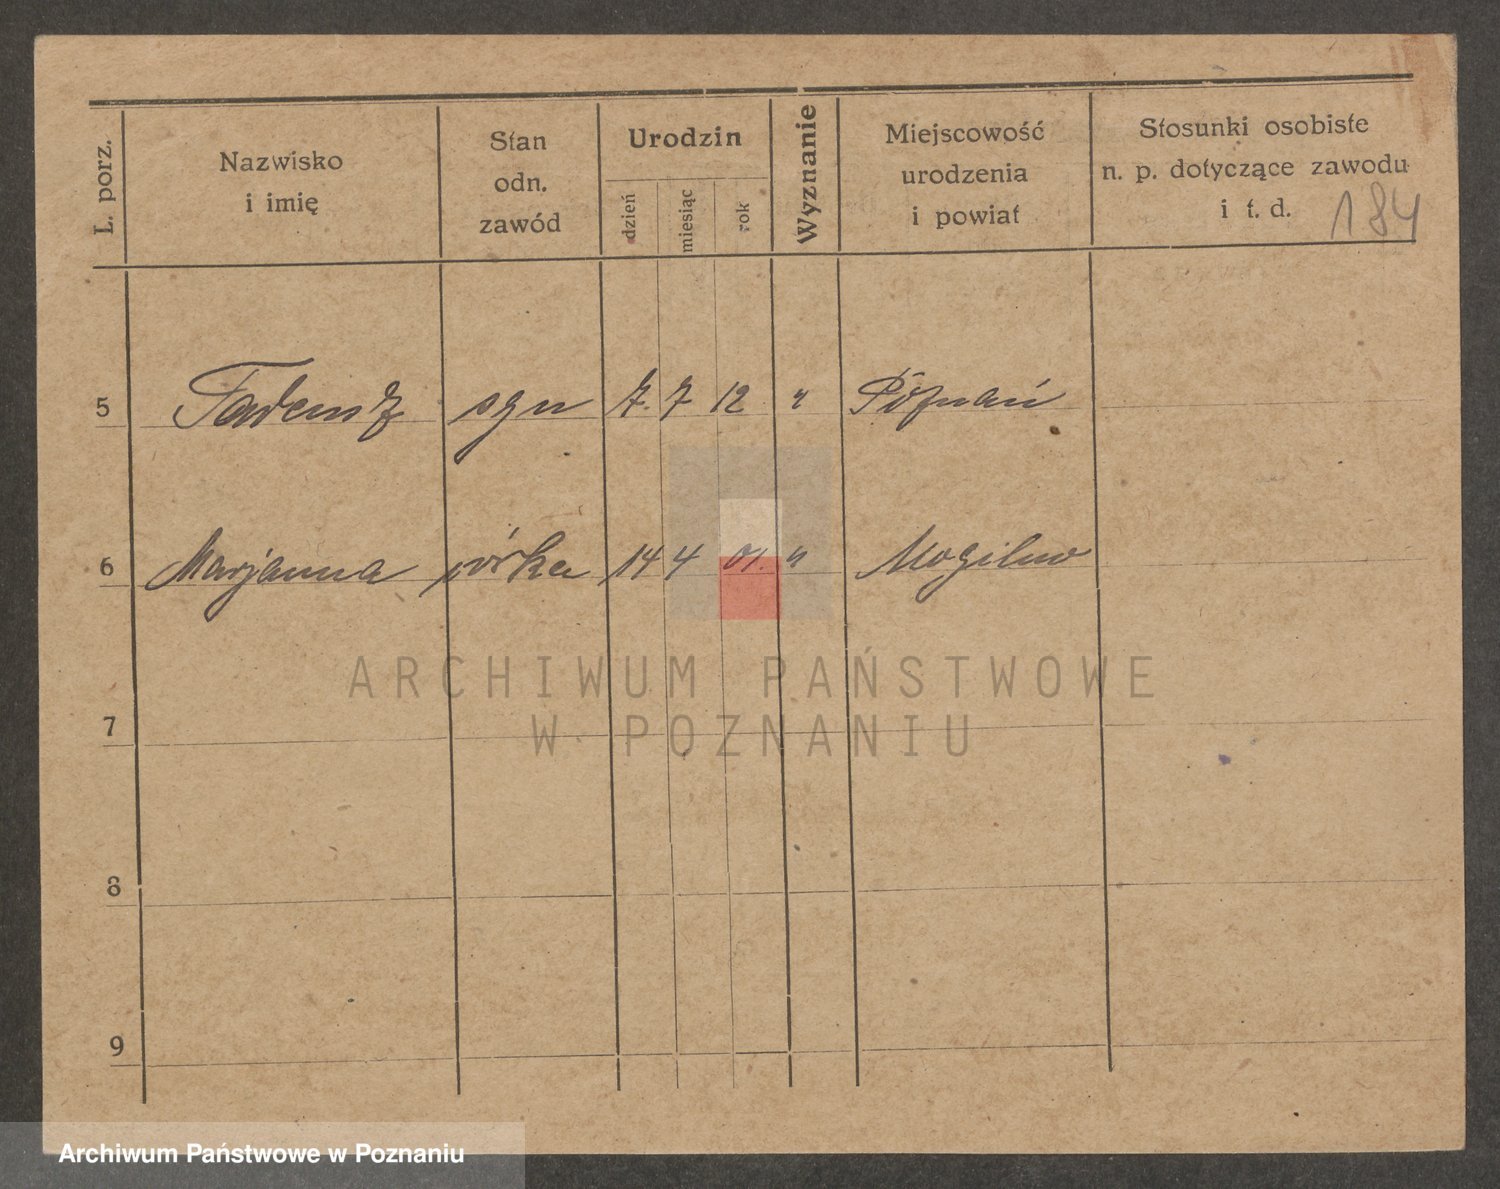 L. porz.
Nazwisko
i imię
Stan
odn.
zawód
Urodzin
dzień
miesiąc
rok
Wyznanie
Miejscowość
urodzenia
i powiat
Stosunki osobiste
n. p. dotyczące zawodu
i t. d.
184
5 Tadeusz syn 7. 7 12 " Poznań
6 Marjanna córka 14 4 01. " Mogilno
7
8
9
ARCHIWUM PAŃSTWOWE
W POZNANIU
Archiwum Państwowe w Poznaniu